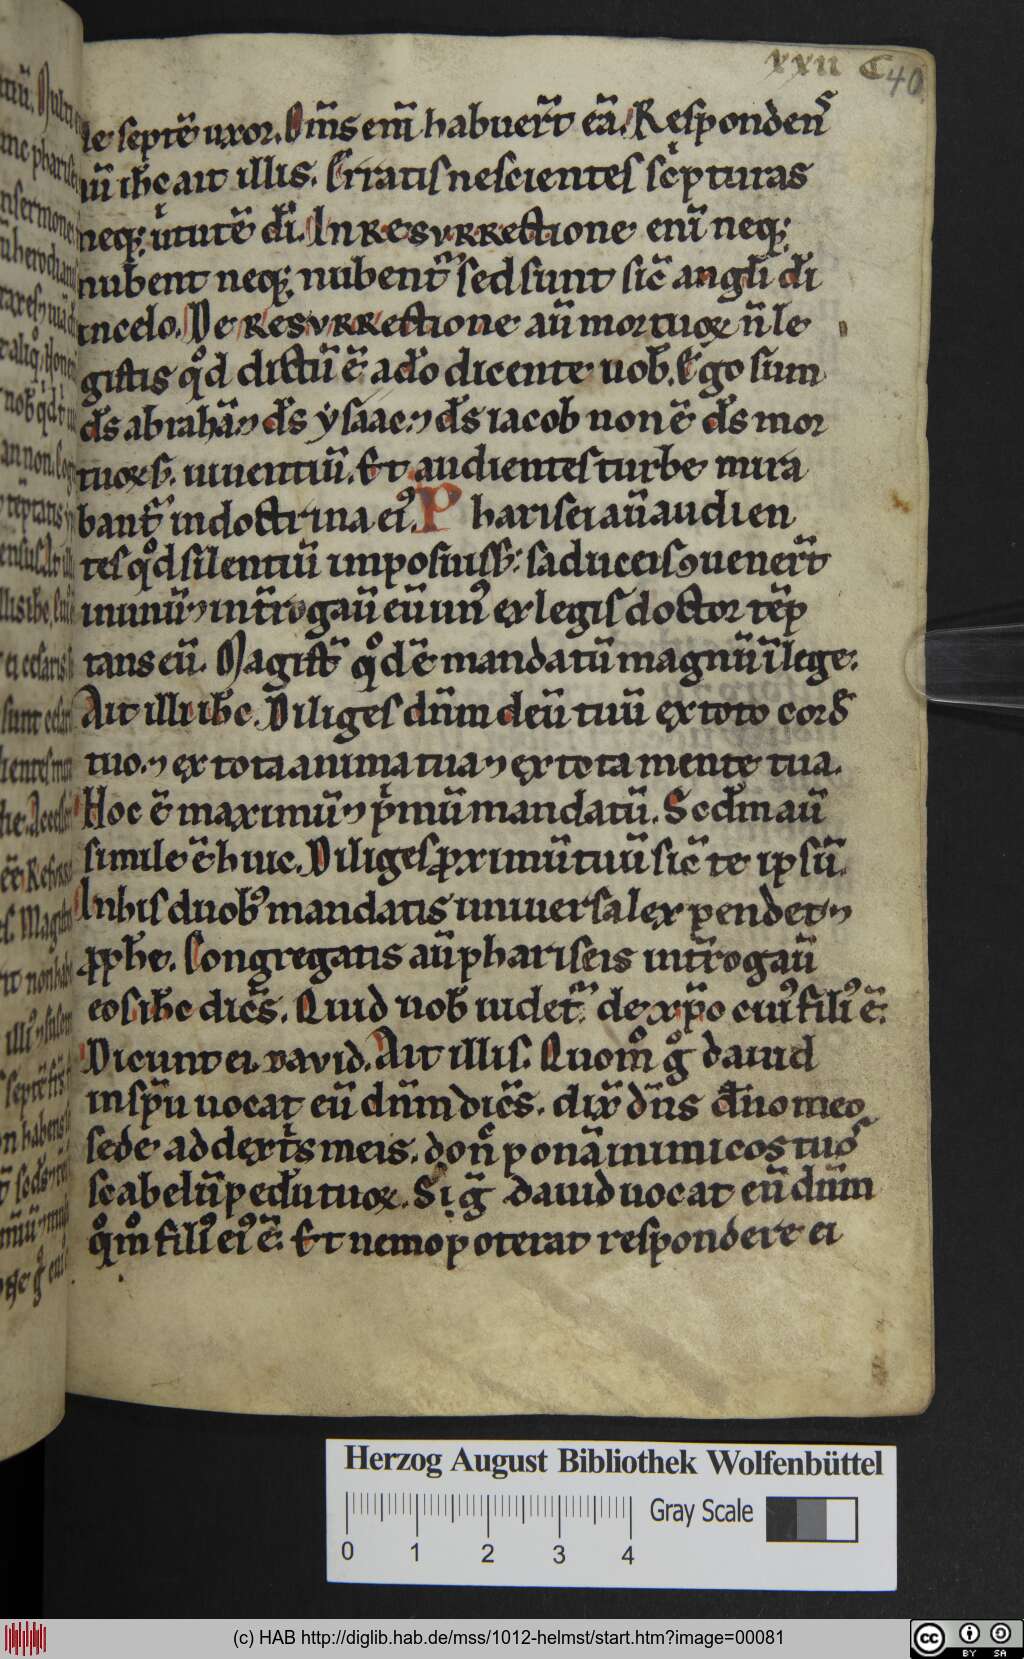 xxii C 40
le septē uxor. Om̅s em̅ habuer̅t eā. Respondens
au̅ ih̅c ait illis. Erratis nescientes sc̅pturas
neq; uirtutē di̅. In resurrectione eni̅ neq;
nubent neq; nubent᷑ sed sunt sic̅ angli̅ di̅
in celo. De resurrectione au̅ mortuoꝝ n̅ le
gistis qd̊ dictū ē a do̅ dicente uob̅. Ego sum
ds̅ abrahā ⁊ ds̅ ysaac ⁊ ds̅ iacob non ē ds̅ mor
tuoꝝ s; uiuentiū. Et audientes turbe mira
bant᷑ in doctrina eiꝰ. Pharisei au̅ audien
tes qd̊ silentiū imposuiss; saduceis ⁊uener̅t
inunū ⁊ int̅rogau̅ eū unꝰ ex legis doctor tēp
tans eū. Magist̅ qd̊ ē mandatū magnū ī lege.
Ait illi ih̅c. Diliges dn̅m deū tuū ex toto cord̅
tuo. ⁊ ex tota anima tua ⁊ ex tota mente tua.
Hoc ē maximū ⁊ pͥmū mandatū. Scd̅m au̅
simile ē huic. Diliges ꝓximū tuū sic̅ te ipsū.
In his duobꝰ mandatis uniuersa lex pendet ⁊
ꝓphe̅. Congregatis au̅ phariseis int̅rogau̅
eos ih̅c dice̅s. Quid uob̅ uidet᷑ de xp̅o cuiꝰ filiꝰ ē.
Dicunt ei david. Ait illis. Quom̊ gͦ dauid
in sp̅u uocat eū dn̅m dice̅s. dix̅ dn̅s dn̅o meo
sede ad dext̅s meis. don̅ ponā inimicos tuos
scabelū pedū tuoꝝ. Si gͦ dauid uocat eū dn̅m
qͦm̊ filiꝰ eiꝰ ē. Et nemo poterat respondere ei
Herzog August Bibliothek Wolfenbüttel
Gray Scale
0 1 2 3 4
(c) HAB http://diglib.hab.de/mss/1012-helmst/start.htm?image=00081
cc BY SA